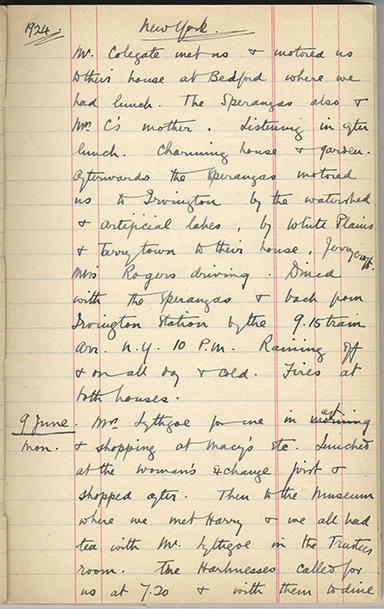 1924. New York.
Mr. Colegate met us & motored us
to their house at Bedford where we
had lunch. The Speranzas also &
Mrs C's mother. Listening in after
lunch. Charming house & garden.
Afterwards the Speranzas motored
us to Irvington by the watershed
& artificial lakes, by White Plains
& Tarrytown to their house,
Mrs Rogers driving. Dined
with the Speranzas & back from
Irvington Station by the 9.15 train
arr. N.Y. 10 P.M. Raining off
& on all day & cold. Fires at
both houses.
9 June. Mrs. Lythgoe for me in
Mon. & shopping at Macy's etc. Lunched
at the Woman's Exchange first &
shopped after. Then to the Museum
where we met Harry & we all had
tea with Mr. Lythgoe in the Trustees
room. The Harknesses called for
us at 7.20 & with them to dine